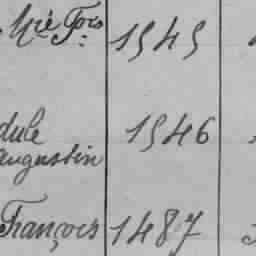 Mié Fois 1545
dule 1546
augustin
François 1487